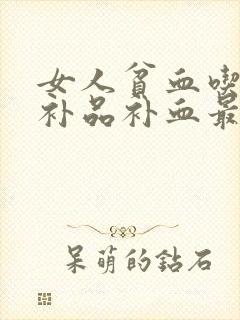 女人贫血喫
补品补血最
呆萌的鉆石